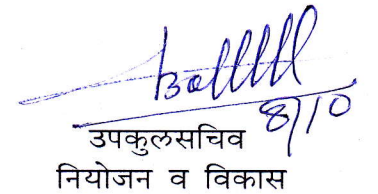 8/10
उपकुलसचिव
नियोजन व विकास